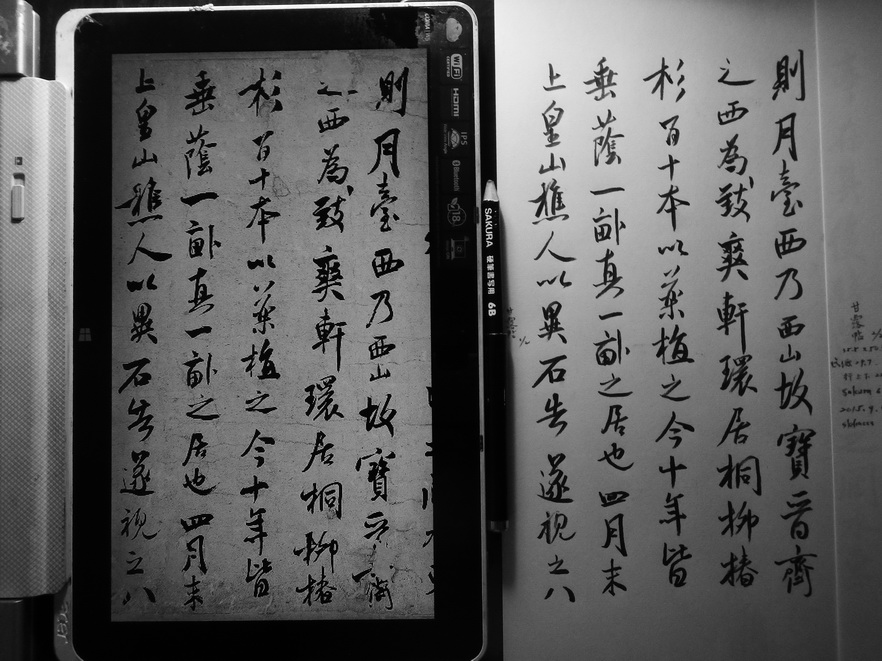 則月臺西乃西山故寶晉齋
之西為致爽軒環居桐柳椿
杉百十本以藥植之今十年皆
垂蔭一畝真一畝之居也四月末
上皇山樵人以異石告遂視之八
WiFi
HDMI
IPS
Bluetooth
acer
SAKURA 硬筆書写用 6B
則月臺西乃西山故寶晉齋
之西為致爽軒環居桐柳椿
杉百十本以藥植之今十年皆
垂蔭一畝真一畝之居也四月末
上皇山樵人以異石告遂視之八
甘露帖
sakura
2015.9.